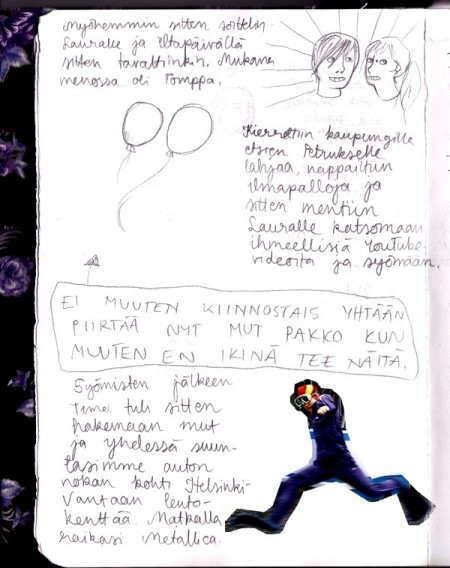 Myöhemmin sitten soittelin
Lauralle ja iltapäivällä
sitten tavattiinkin. Mukana
menossa oli Pomppa.
Kierreltiin kaupungilla
etsien Petrukselle
lahjaa, nappailtiin
ilmapalloja ja
sitten mentiin
Lauralle katsomaan
ihmeellisiä YouTube-
videoita ja syömään.
EI MUUTEN KIINNOSTAIS YHTÄÄN
PIIRTÄÄ NYT MUT PAKKO KUN
MUUTEN EN IKINÄ TEE NÄITÄ.
Syömisten jälkeen
Timo tuli sitten
hakemaan mut
ja yhdessä suun-
tasimme auton
nokan kohti Helsinki-
Vantaan lento-
kenttää. Matkalla
raikasi Metallica.